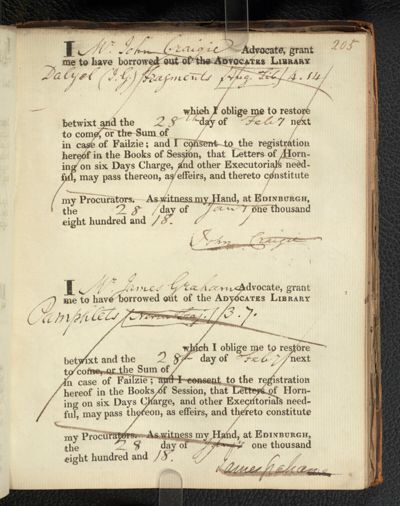 205
I Mr. John Craigie Advocate, grant
me to have borrowed out of the ADVOCATES LIBRARY
Dalyel (J. G.) fragments 4.14
which I oblige me to restore
betwixt and the 28th day of Feb7 next
to come, or the Sum of
in case of Failzie; and I consent to the registration
hereof in the Books of Session, that Letters of Horn-
ing on six Days Charge, and other Executorials need-
ful, may pass thereon, as effeirs, and thereto constitute
my Procurators. As witness my Hand, at EDINBURGH,
the 28 day of Jany one thousand
eight hundred and 18.
John Craigie
I Mr. James Graham Advocate, grant
me to have borrowed out of the ADVOCATES LIBRARY
Pamphlets 3.7.
which I oblige me to restore
betwixt and the 28 day of Feb7 next
to come, or the Sum of
in case of Failzie; and I consent to the registration
hereof in the Books of Session, that Letters of Horn-
ing on six Days Charge, and other Executorials need-
ful, may pass thereon, as effeirs, and thereto constitute
my Procurators. As witness my Hand, at EDINBURGH,
the 28 day of Jany one thousand
eight hundred and 18.
James Graham